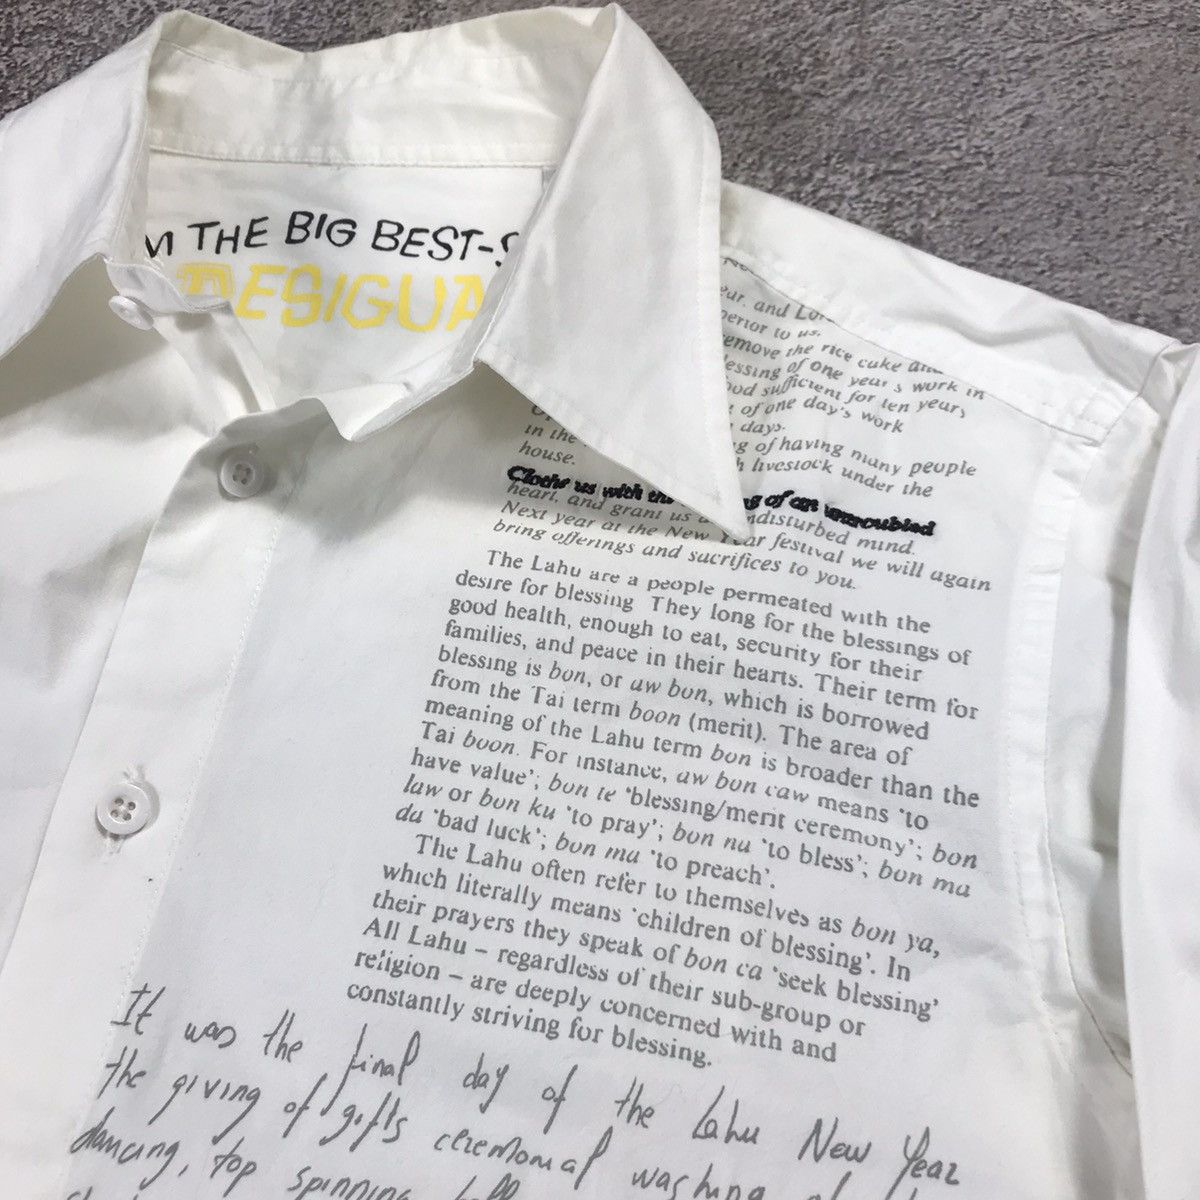 THE BIG BEST-S
DESIGUA
and
perior to us.
remove the rice cake
lessing of one year's work in
ood sufficient for ten years
of one day's work
days.
in the
g of having many people
house.
h livestock under the
Clothe us with the g of an untroubled
heart, and grant us undisturbed mind.
Next year at the New Year festival we will again
bring offerings and sacrifices to you.
The Lahu are a people permeated with the
desire for blessing They long for the blessings of
good health, enough to eat, security for their
families, and peace in their hearts. Their term for
blessing is bon, or aw bon, which is borrowed
from the Tai term boon (merit). The area of
meaning of the Lahu term bon is broader than the
Tai boon. For instance, aw bon caw means 'to
have value'; bon te 'blessing/merit ceremony'; bon
law or bon ku 'to pray'; bon na 'to bless'; bon ma
da 'bad luck'; bon ma 'to preach'.
The Lahu often refer to themselves as bon ya,
which literally means 'children of blessing'. In
their prayers they speak of bon ca 'seek blessing'
All Lahu – regardless of their sub-group or
religion – are deeply concerned with and
constantly striving for blessing.
It was the final day of the Lahu New Year
the giving of gifts ceremonial washing of
dancing, top spinning